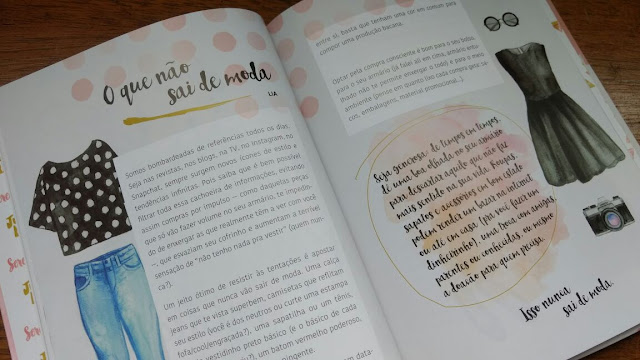 O que não
sai de moda
LIA
Somos bombardeadas de referências todos os dias.
Seja nas revistas, nos blogs, na TV, no Instagram, no
Snapchat, sempre surgem novos ícones de estilo e
tendências infinitas. Pois saiba que é bem possível
filtrar toda essa cachoeira de informações, evitando
assim compras por impulso – como daquelas peças
que só vão fazer volume no seu armário, te impedin-
do de enxergar as que realmente têm a ver com você
–, que esvaziam seu cofrinho e aumentam a terrível
sensação de "não tenho nada pra vestir" (quem nun-
ca?).
Um jeito ótimo de resistir às tentações é apostar
em coisas que nunca vão sair de moda. Uma calça
jeans que te vista superbem, camisetas que reflitam
seu estilo (você é dos neutros ou curte uma estampa
fofa/cool/engraçada?), uma sapatilha ou um tênis,
vestidinho preto básico (e o básico de cada
um batom vermelho poderoso,
entre si, basta que tenham uma cor em comum para
compor uma produção bacana.
Optar pela compra consciente é bom para o seu bolso,
para o seu armário (dá tchau ali em cima, armário entu-
lhado não te permite enxergar o todo) e para o meio
ambiente (pense em quanto lixo cada compra gera: sa-
cos, embalagens, material promocional...)
Seja generosa: de tempos em tempos,
dê uma boa olhada no seu armário
para descartar aquilo que não faz
mais sentido na sua vida. Roupas,
sapatos e acessórios em bom estado
podem render um bazar na internet
ou até em casa (pra você fazer um
dinheirinho!), uma troca com amigas,
parentes ou conhecidas, ou mesmo
a doação para quem precisa.
Isso nunca
sai de moda.